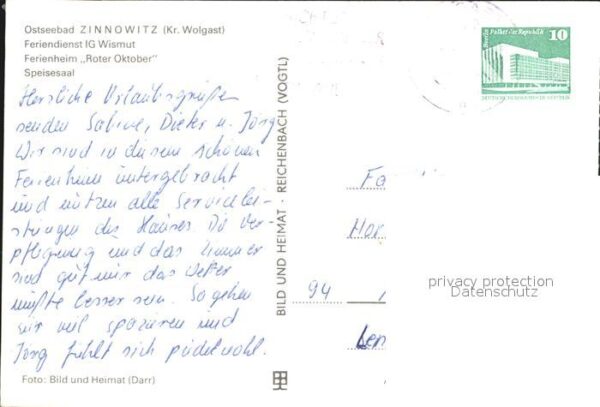 Ostseebad ZINNOWITZ (Kr. Wolgast)
Feriendienst IG Wismut
Ferienheim „Roter Oktober"
Speisesaal
Herzliche Urlaubsgrüße
senden Sabine, Dieter u. Jörg.
Wir sind in diesem schönen
Ferienheim untergebracht
und nutzen alle Servicelei-
stungen des Hauses. Die Ver-
pflegung und das Zimmer
sind gut, nur das Wetter
müßte besser sein. So gehen
wir viel spazieren und
Jörg fühlt sich pudelwohl.
Foto: Bild und Heimat (Darr)
BILD UND HEIMAT · REICHENBACH (VOGTL)
Berlin Palast der Republik
10
DEUTSCHE DEMOKRATISCHE REPUBLIK
Fa
94
privacy protection
Datenschutz